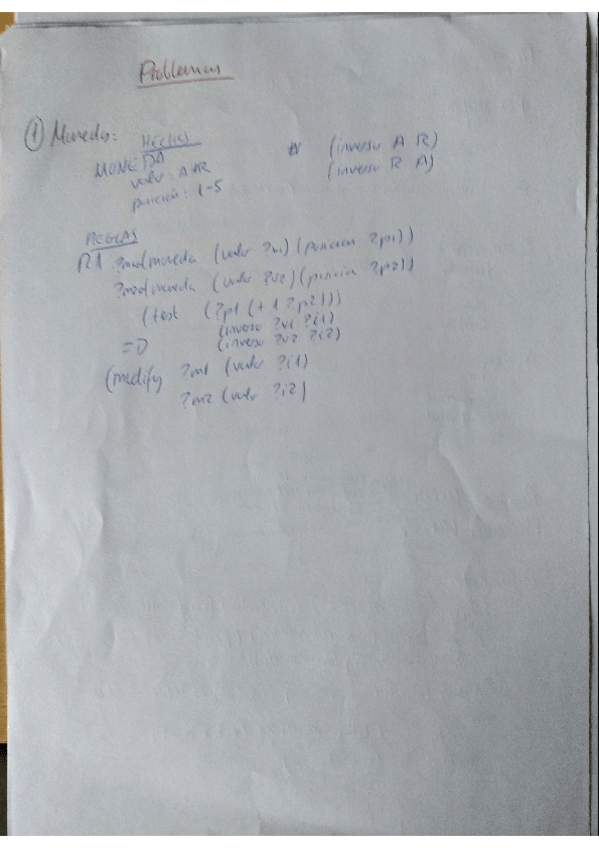 Problemas
① Monedas: HECHOS
MONEDA
valor: A/R
posición: 1-5
(inverso A R)
(inverso R A)
REGLAS
R1 (moneda (valor ?v1) (posicion ?p1))
(moneda (valor ?v2) (posicion ?p2))
(test (?p1 (+ 1 ?p2)))
(inverso ?v1 ?i1)
(inverso ?v2 ?i2)
=D
(modify ?m1 (valor ?i1)
?m2 (valor ?i2)